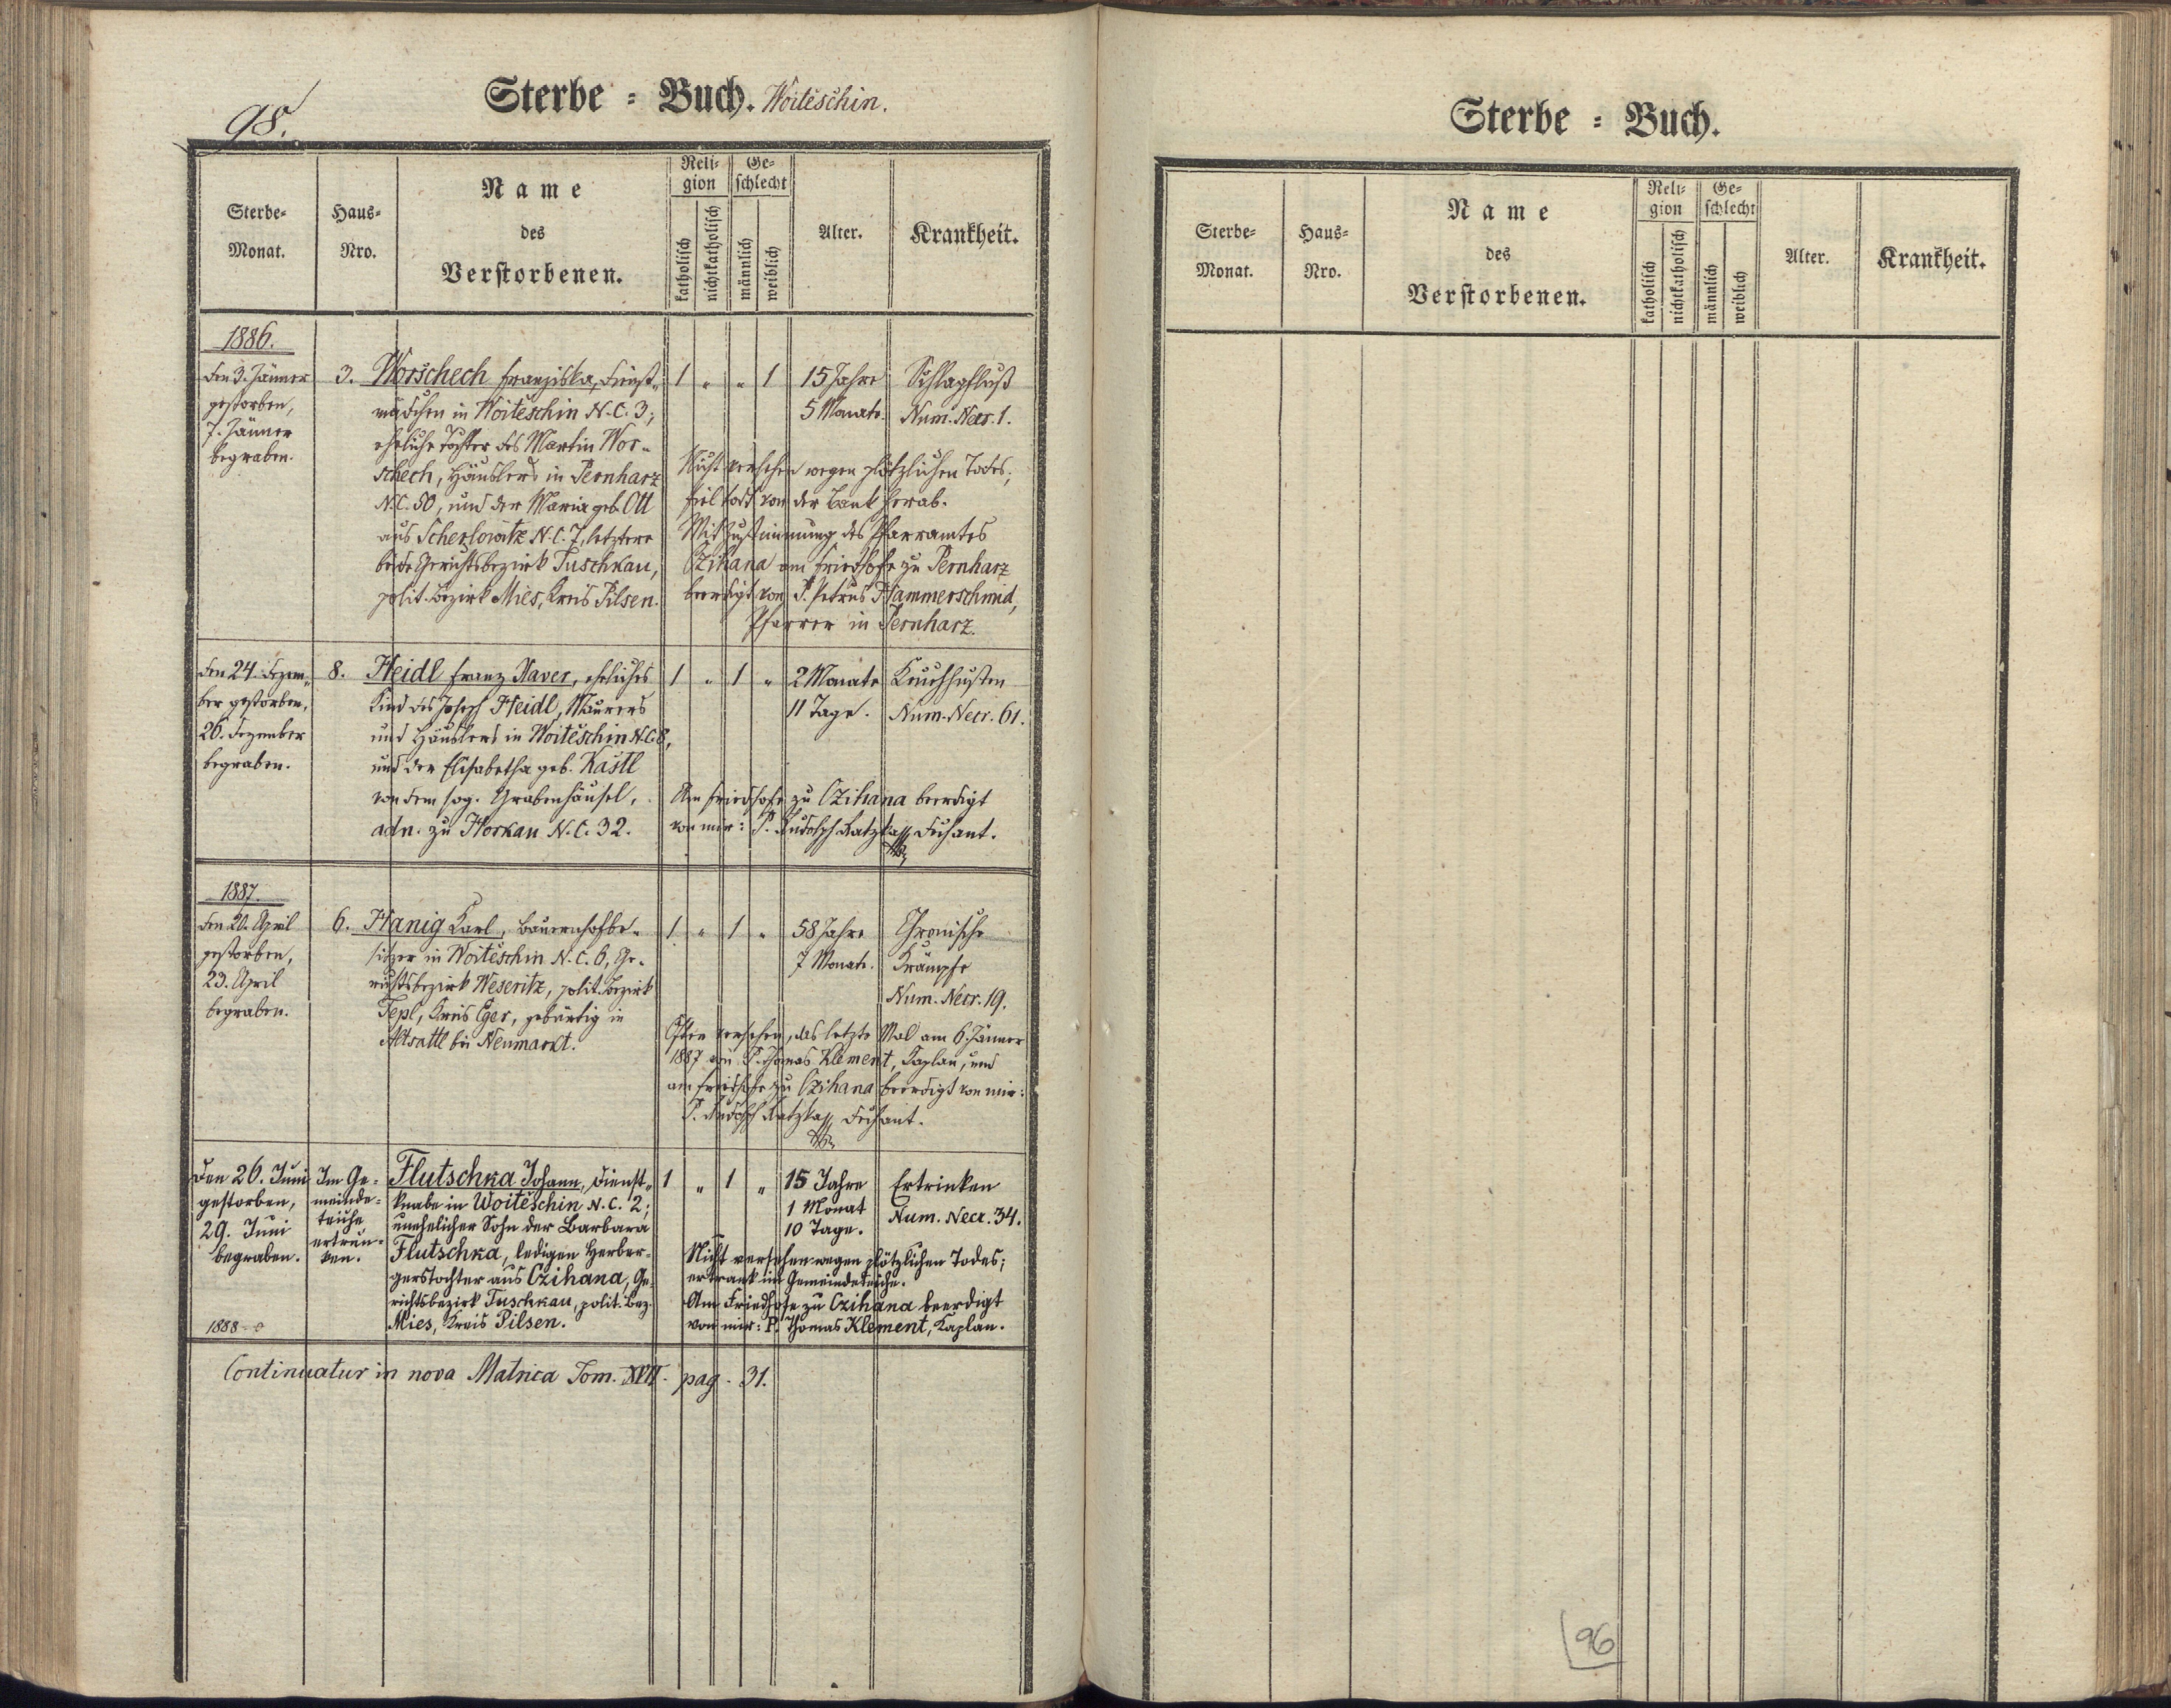 98.
Sterbe = Buch. Woiteschin.
Sterbe-
Monat.
Haus-
Nro.
Name
des
Verstorbenen.
Reli-
gion
katholisch
nichtkatholisch
Ge-
schlecht
männlich
weiblich
Alter.
Krankheit.
1886.
Den 3. Jänner
gestorben,
7. Jänner
begraben.
3.
Worschech Franziska, Dienst-
mädchen in Woiteschin N.C. 3;
eheliche Tochter des Martin Wor-
schech, Häuslers in Pernharz
N.C. 50, und der Maria geb. Ott
aus Scherlowitz N.C. 7, letztere
beide Gerichtsbezirk Tuschkau,
polit. Bezirk Mies, Kreis Pilsen.
1 " " 1
15 Jahre
5 Monate.
Schlagfluß
Num. Necr. 1.
Nicht versehen wegen plötzlichen Todes;
fiel todt von der Bank herab.
Mit Zustimmung des Pfarramtes
Czihana am Friedhofe zu Pernharz
beerdigt von P. Petrus Hammerschmid,
Pfarrer in Pernharz.
Den 24. Dezem-
ber gestorben,
26. Dezember
begraben.
8.
Heidl Franz Xaver, eheliches
Kind des Joseph Heidl, Maurers
und Häuslers in Woiteschin N.C. 8,
und der Elisabetha geb. Kastl
von dem sog. Grabenhäusel,
adn. zu Horkau N.C. 32.
1 " 1 "
2 Monate
11 Tage.
Keuchhusten
Num. Necr. 61.
Am Friedhofe zu Czihana beerdigt
von mir: P. Rudolph Ratzka, Dechant.
1887.
Den 20. April
gestorben,
23. April
begraben.
6.
Hanig Karl, Bauernhofbe-
sitzer in Woiteschin N.C. 6, Ge-
richtsbezirk Weseritz, polit. Bezirk
Tepl, Kreis Eger, gebürtig in
Altsattl bei Neumarkt.
1 " 1 "
58 Jahre
7 Monate.
Chronische
Krämpfe
Num. Necr. 19.
Öfter versehen, das letzte Mal am 6. Jänner
1887 von P. Thomas Klement, Kaplan, und
am Friedhofe zu Czihana beerdigt von mir:
P. Rudolph Ratzka, Dechant.
Den 26. Juni
gestorben,
29. Juni
begraben.
Im Ge-
meinde-
teiche
ertrun-
ken.
Flutschka Johann, Dienst-
knabe in Woiteschin N.C. 2;
unehelicher Sohn der Barbara
Flutschka, ledigen Herber-
gerstochter aus Czihana, Ge-
richtsbezirk Tuschkau, polit. Bez.
Mies, Kreis Pilsen.
1 " 1 "
15 Jahre
1 Monat
10 Tage.
Ertrinken
Num. Necr. 34.
Nicht versehen wegen plötzlichen Todes;
ertrank im Gemeindeteiche.
Am Friedhofe zu Czihana beerdigt
von mir: P. Thomas Klement, Kaplan.
1888 - 0
Continuatur in nova Matrica Tom. XVII. pag. 31.
Sterbe = Buch.
Sterbe-
Monat.
Haus-
Nro.
Name
des
Verstorbenen.
Reli-
gion
katholisch
nichtkatholisch
Ge-
schlecht
männlich
weiblich
Alter.
Krankheit.
96